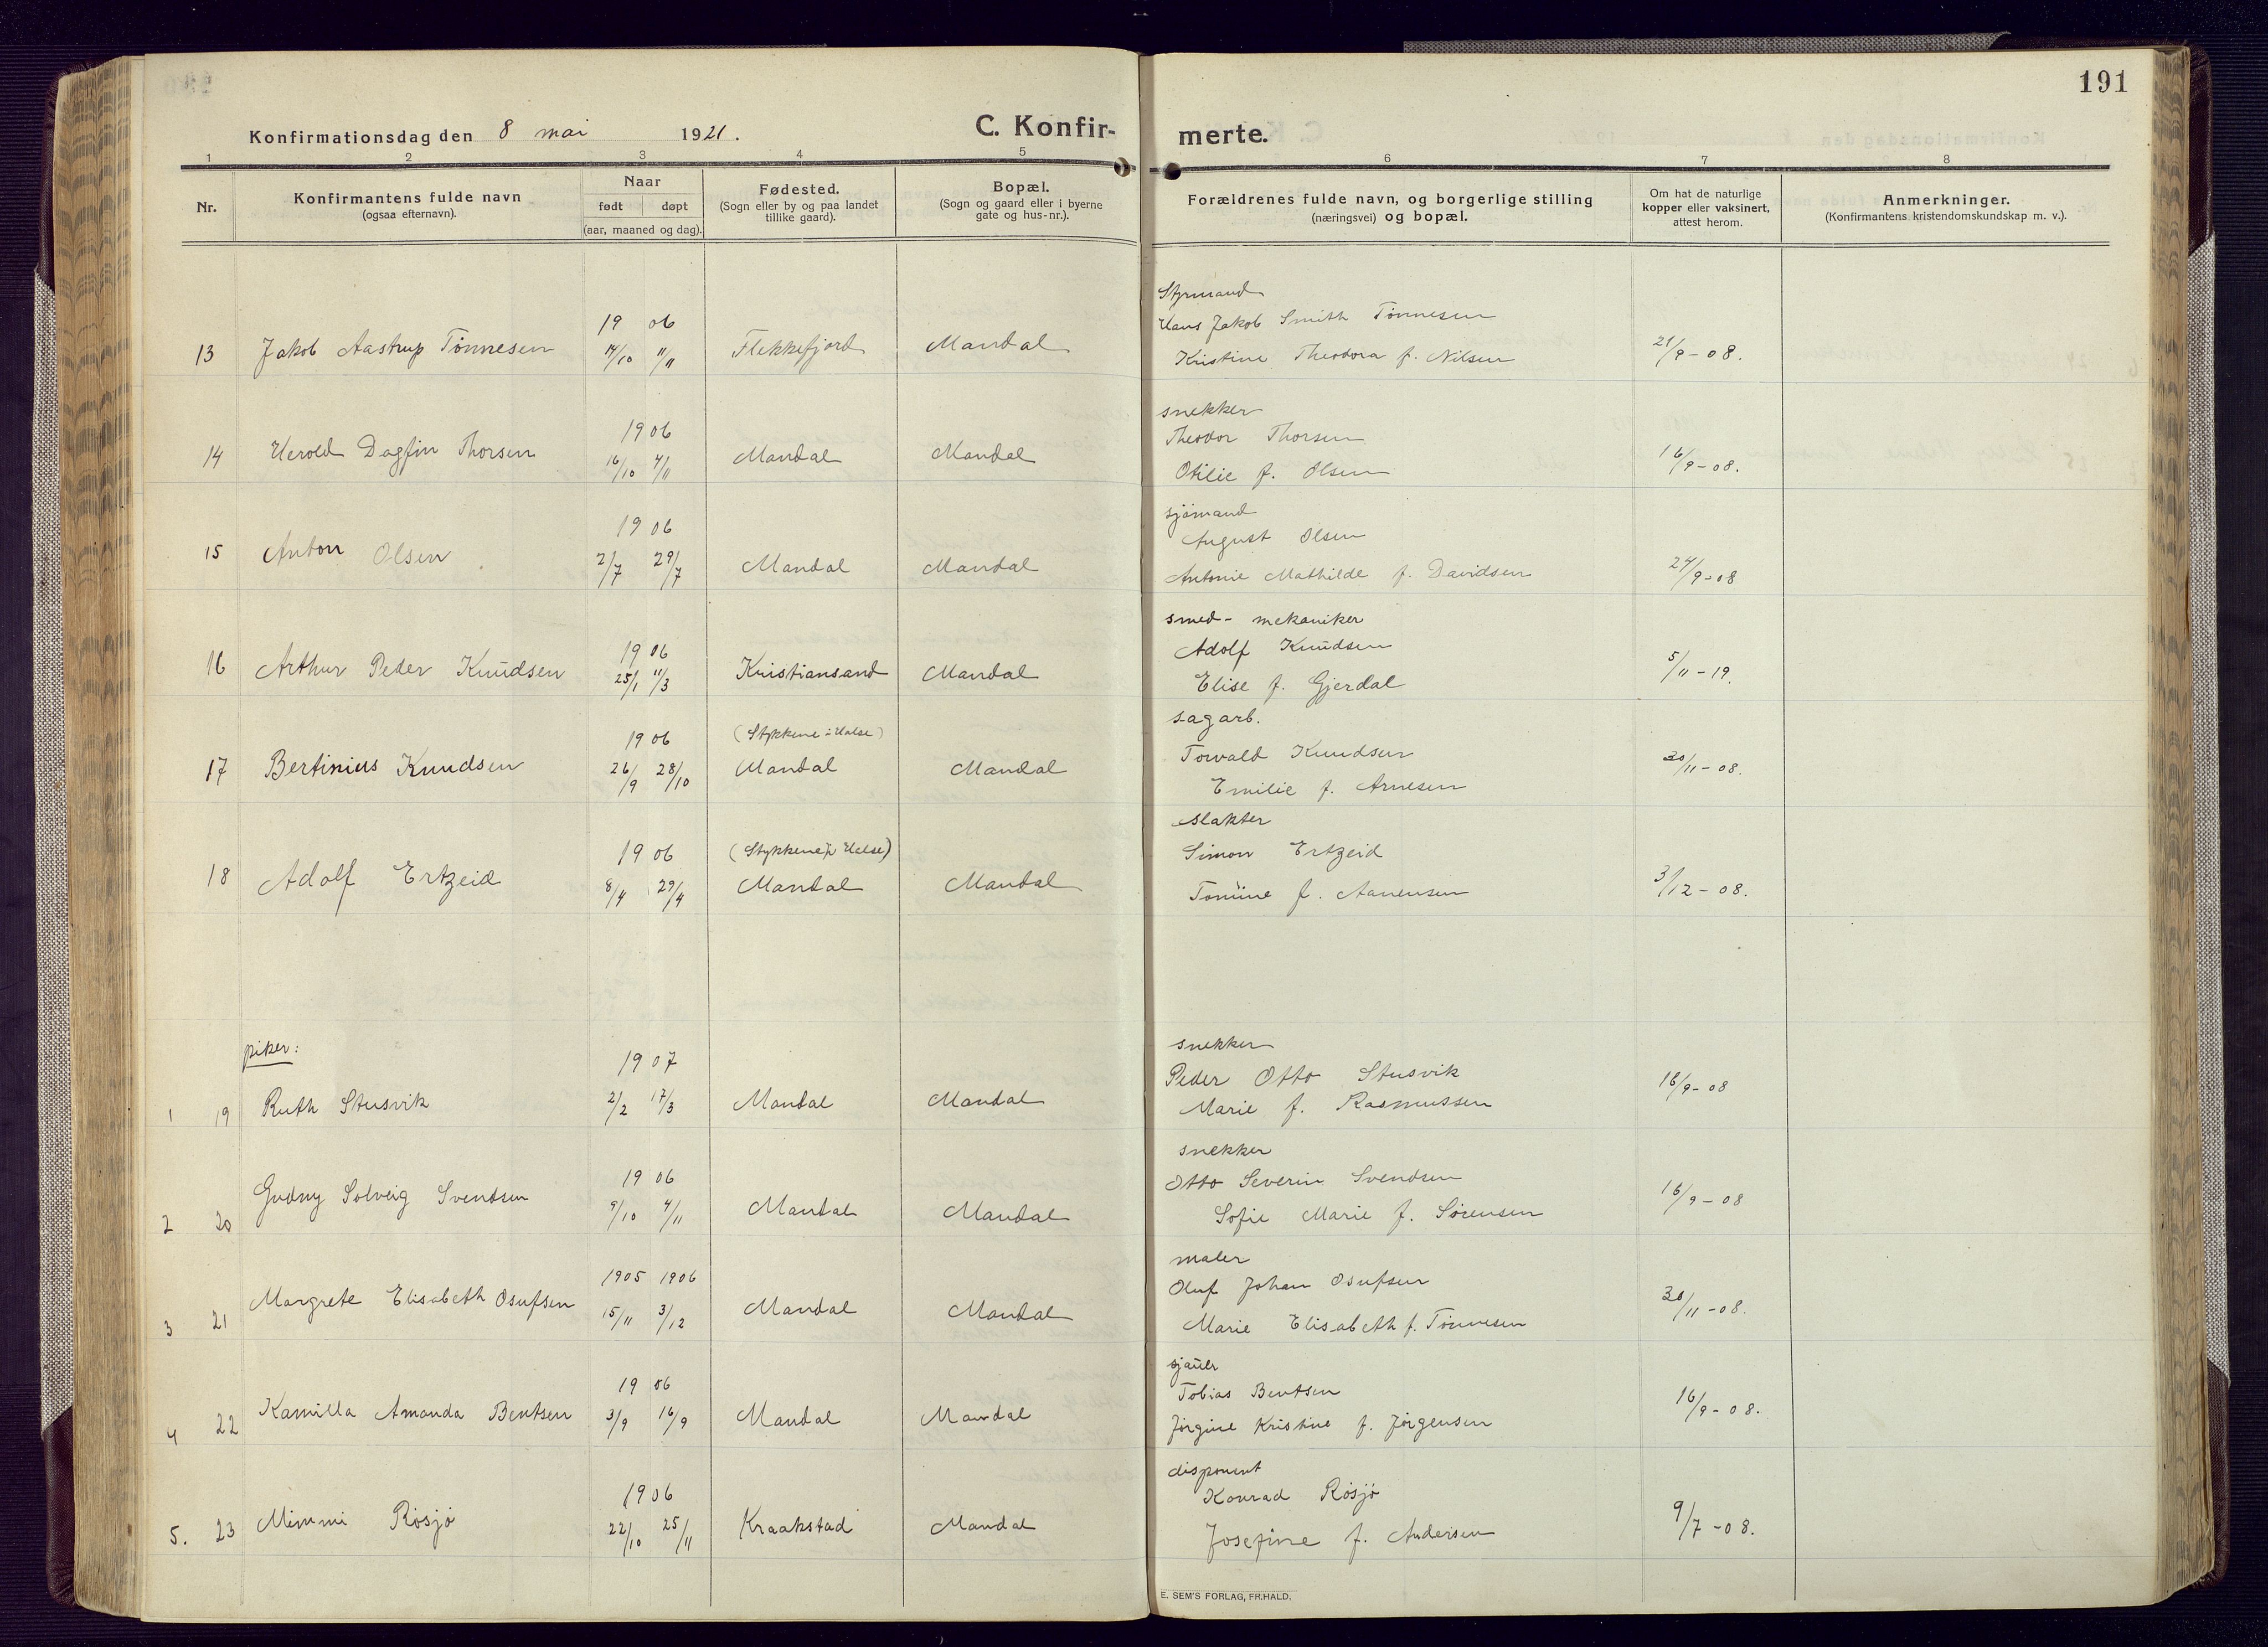 191
Konfirmationsdag den 8 mai 1921.
C. Konfir-
merte.
1 2 3 4 5 6 7 8
Nr.
Konfirmantens fulde navn
(ogsaa efternavn).
Naar
født døpt
(aar, maaned og dag).
Fødested.
(Sogn eller by og paa landet
tillike gaard).
Bopæl.
(Sogn og gaard eller i byerne
gate og hus-nr.).
Forældrenes fulde navn, og borgerlige stilling
(næringsvei) og bopæl.
Om hat de naturlige
kopper eller vaksinert,
attest herom.
Anmerkninger.
(Konfirmantens kristendomskundskap m. v.).
Styrmand
19 06 Hans Jakob Smith Tönnesen
13 Jakob Aastrup Tönnesen 14/10 11/11 Flekkefjord Mandal Kristine Theodora f. Nilsen 21/9-08.
snekker
1906 Theodor Thorsen
14 Herold Dagfin Thorsen 16/10 4/11 Mandal Mandal Otilie f. Olsen 16/9-08.
sjömand
1906 August Olsen
15 Anton Olsen 2/7 29/7 Mandal Mandal Antonie Mathilde f. Davidsen 24/9-08
smed- mekaniker
1906 Adolf Knudsen
16 Arthur Peder Knudsen 25/1 11/3 Kristiansand Mandal Elise f. Gjerdal 5/11-19.
sagarb.
1906 (Stykkene i Halse) Torvald Knudsen
17 Bertinius Knudsen 26/9 28/10 Mandal Mandal Emilie f. Arnesen 30/11-08.
slakter
1906 (Stykkene i Halse) Simon Ertzeid
18 Adolf Ertzeid 8/4 29/4 Mandal Mandal Tomine f. Aanensen 3/12-08.
piker:
snekker
1907 Peder Otto Stusvik
1 19 Ruth Stusvik 2/2 17/3 Mandal Mandal Marie f. Rasmussen 16/9-08
snekker
1906 Otto Severin Svendsen
2 20 Gudny Solveig Svendsen 9/10 4/11 Mandal Mandal Sofie Marie f. Sörensen 16/9-08
maler
1905 1906 Oluf Johan Osufsen
3 21 Margrete Elisabeth Osufsen 15/11 3/12 Mandal Mandal Marie Elisabeth f. Tönnesen 30/11-08.
sjauer
1906 Tobias Bentsen
4 22 Kamilla Amanda Bentsen 3/9 16/9 Mandal Mandal Jörgine Kristine f. Jörgensen 16/9-08.
disponent
1906 Konrad Rösjö
5. 23 Mimmi Rösjö 22/10 25/11 Kraakstad Mandal Josefine f. Andersen 9/7-08.
E. SEM'S FORLAG, FR.HALD.